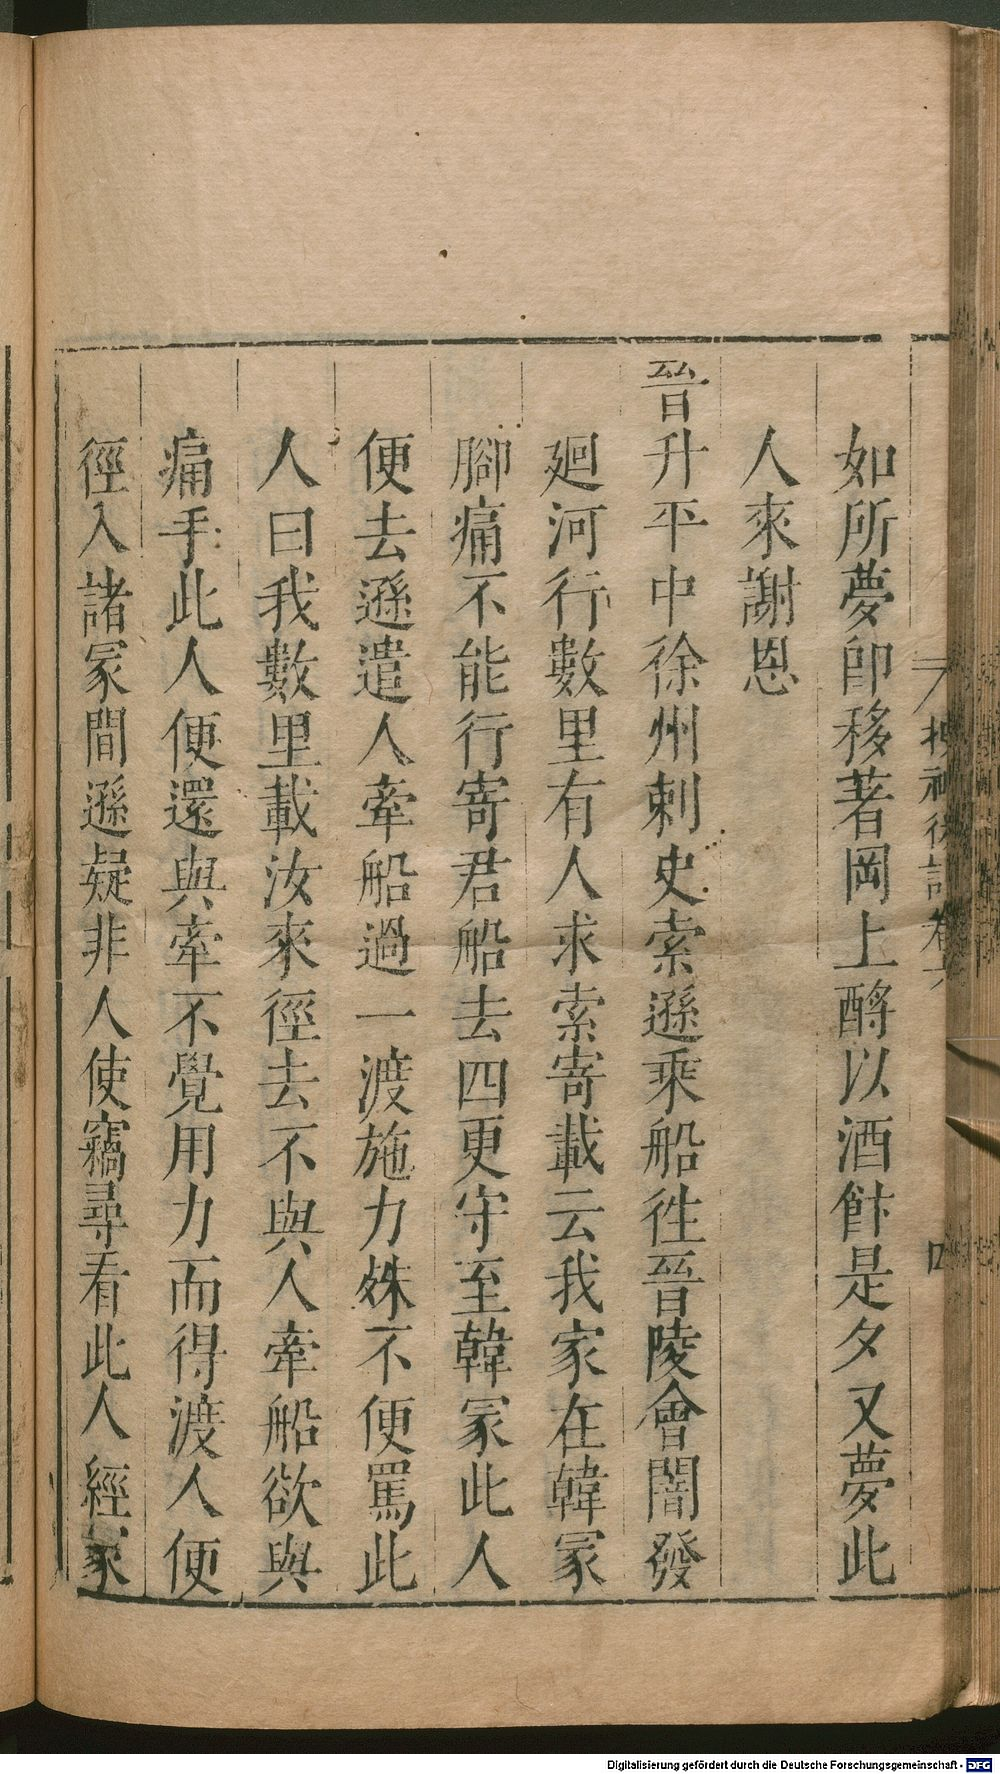 搜神後記卷六
四
如所夢卽移著岡上酹以酒飿是夕又夢此
人來謝恩
晉升平中徐州刺史索遜乘船徃晉陵會闇發
廻河行數里有人求索寄載云我家在韓冢
腳痛不能行寄君船去四更守至韓冢此人
便去遜遣人牽船過一渡施力殊不便罵此
人曰我數里載汝來徑去不與人牽船欲與
痛手此人便還與牽不覺用力而得渡人便
徑入諸冢間遜疑非人使竊尋看此人經冢
Digitalisierung gefördert durch die Deutsche Forschungsgemeinschaft - DFG